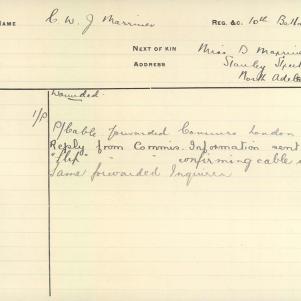 NAME C. W. J. Marriner REG. &C. 10th Battn
NEXT OF KIN Miss D Marrin
ADDRESS Stanley Street
North Adel
Wounded.
P/Cable forwarded Commrs London
Reply from Commis. Information sent
" " confirming cable
Same forwarded Inquirer